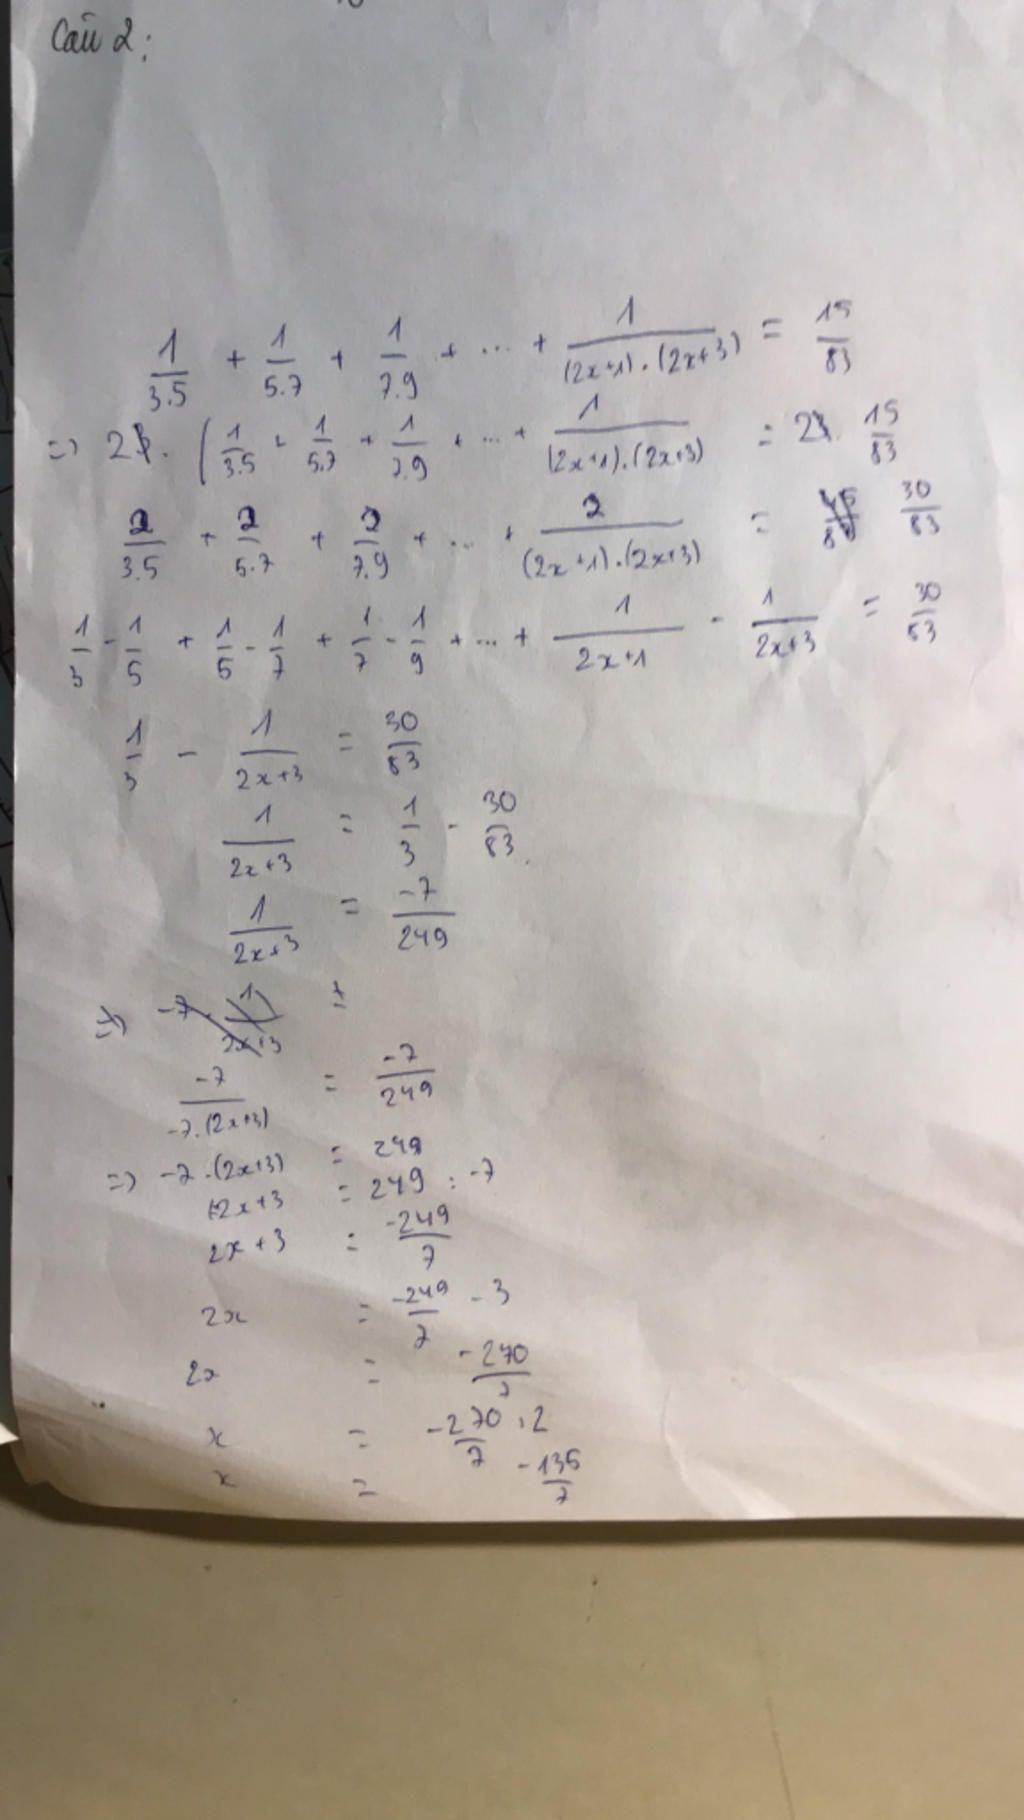 Câu 2:
1/3.5 + 1/5.7 + 1/7.9 + ... + 1/(2x+1).(2x+3) = 15/83
=> 2. (1/3.5 + 1/5.7 + 1/7.9 + ... + 1/(2x+1).(2x+3) = 2. 15/83
2/3.5 + 2/5.7 + 2/7.9 + ... + 2/(2x+1).(2x+3) = 30/83
1/3 - 1/5 + 1/5 - 1/7 + 1/7 - 1/9 + ... + 1/2x+1 - 1/2x+3 = 30/83
1/3 - 1/2x+3 = 30/83
1/2x+3 = 1/3 - 30/83.
1/2x+3 = -7/249
=> -7 . 1/2x+3 =
-7/-7.(2x+3) = -7/249
=> -7.(2x+3) = 249
2x+3 = 249 : -7
2x+3 = -249/7
2x = -249/7 - 3
2x = -270/7
x = -270/7 : 2
x = -135/7